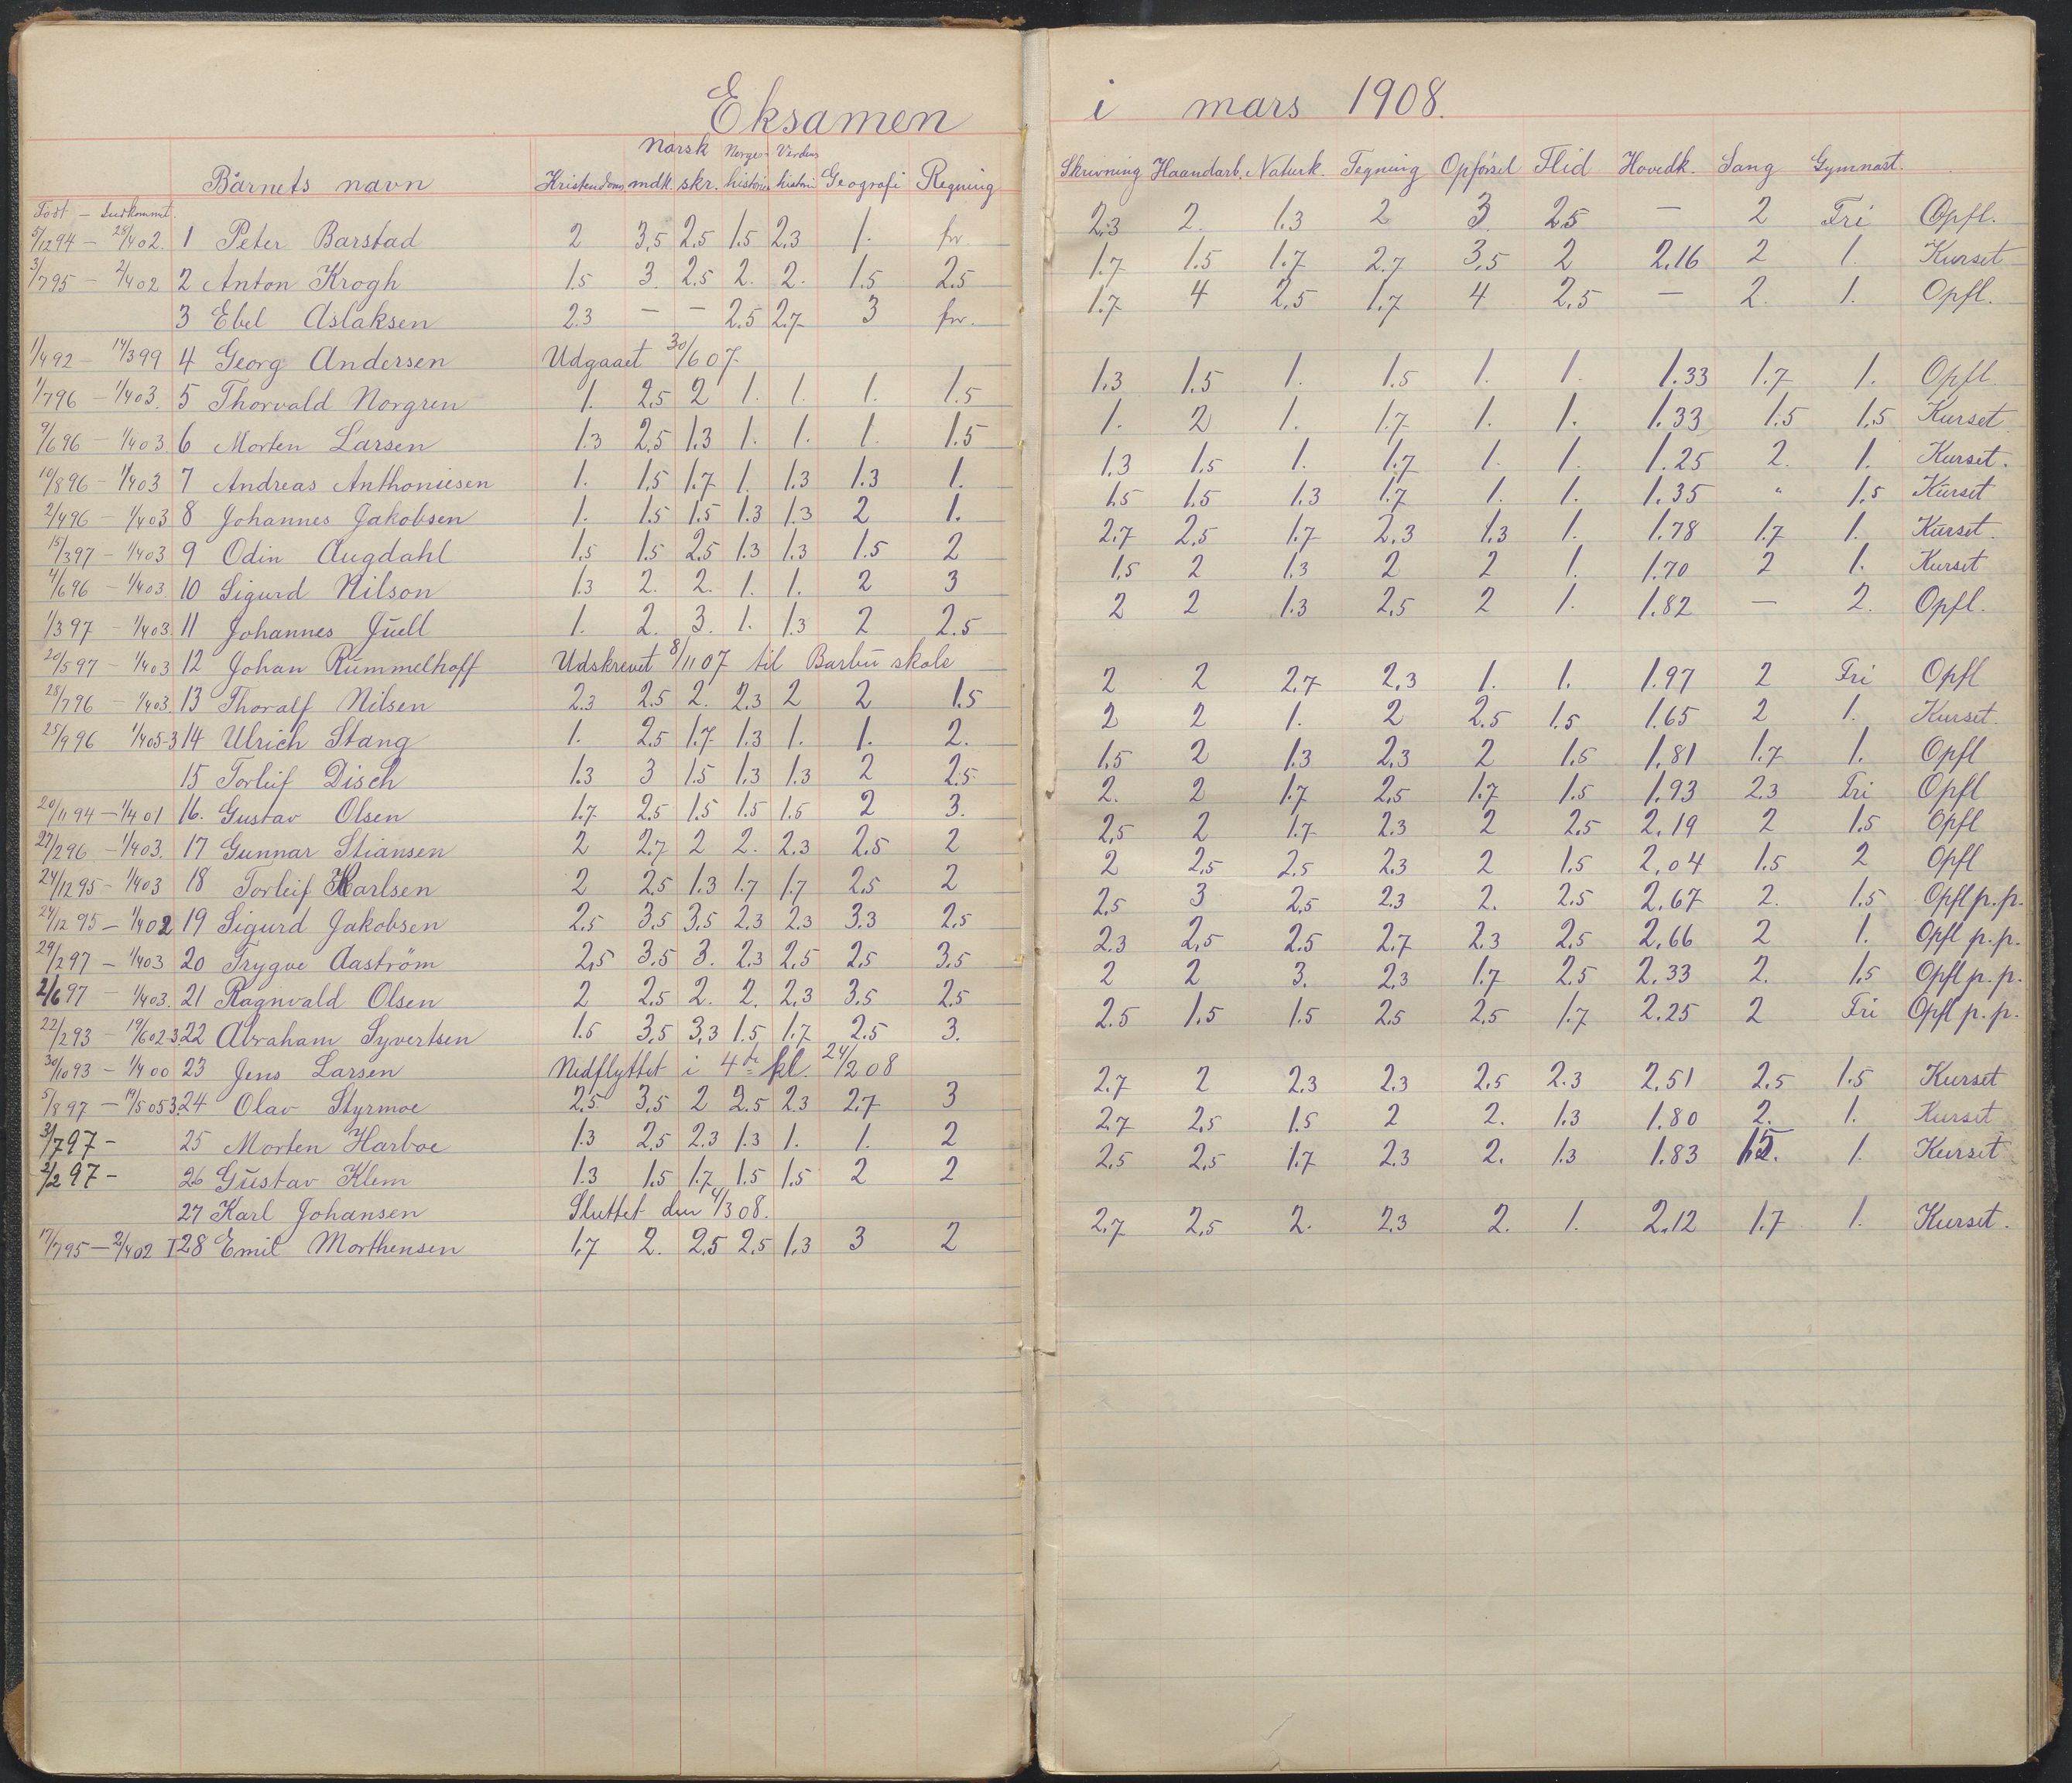 Eksamen i mars 1908.
Norsk Norges Verdens
Barnets navn Kristendom mdk. skr. historie historie Geografi Regning Skrivning Haandarb. Naturk. Tegning Opførsel Flid Hovedk. Sang Gymnast.
Født — Indkommet.
5/12 94 — 28/4 02. 1 Peter Barstad 2 3,5 2,5 1.5 2,3 1. fr 2,3 2. 1.3 2 3. 2,5 — 2 Fri Opfl.
3/7 95 — 2/4 02 2 Anton Krogh 1.5 3. 2,5 2. 2. 1.5 2.5 1.7 1.5 1.7 2.7 3,5 2 2,16 2 1. Kurset
3 Ebel Aslaksen 2.3 — — 2.5 2.7 3 fr. 1.7 4 2,5 1.7 4 2,5 — 2. 1. Opfl.
1/4 92 — 14/3 99 4 Georg Andersen Udgaaet 30/6 07.
1/7 96 — 1/4 03. 5 Thorvald Norgren 1. 2,5 2 1. 1. 1. 1.5 1.3 1.5 1. 1.5 1. 1. 1.33 1.7 1. Opfl
9/6 96 — 1/4 03. 6 Morten Larsen 1.3 2,5 1.3 1. 1. 1. 1.5 1. 2 1. 1.7 1. 1. 1.33 1.5 1,5 Kurset
10/8 96 — 1/4 03 7 Andreas Anthonisen 1. 1.5 1.7 1. 1.3 1.3 1. 1.3 1.5 1. 1.7 1. 1. 1.25 2. 1. Kurset.
2/4 96 — 1/4 03 8 Johannes Jakobsen 1. 1.5 1.5 1.3 1.3 2 1. 1.5 1.5 1.3 1.7 1. 1. 1.35 " 1.5 Kurset
15/3 97 — 1/4 03 9 Odin Augdahl 1.5 1.5 2,5 1.3 1.3 1.5 2 2.7 2,5 1.7 2,3 1.3 1. 1.78 1.7 1. Kurset.
4/6 96 — 1/4 03 10 Sigurd Nilson 1.3 2. 2. 1. 1. 2 3 1,5 2 1.3 2 2 1. 1.70 2 1. Kurset
1/3 97 — 1/4 03. 11 Johannes Juell 1. 2. 3. 1. 1.3 2 2.5 2 2 1.3 2,5 2 1. 1.82 — 2. Opfl.
20/5 97 — 1/4 03 12 Johan Rummelhoff Udskrevet 8/11 07 til Barbu skole
28/7 96 — 1/4 03. 13 Thoralf Nilsen 2.3 2.5 2. 2.3 2 2 1.5 2 2 2.7 2,3 1. 1. 1.97 2 Fri Opfl
25/9 96 1/4 05-3 14 Ulrich Stang 1. 2.5 1.7 1.3 1. 1. 2. 2 2 1. 2 2.5 1.5 1.65 2 1. Kurset.
15 Torleif Disch 1.3 3 1.5 1.3 1.3 2 2.5 1,5 2 1.3 2.3 2 1.5 1.81 1.7 1. Opfl
20/11 94 — 1/4 01 16. Gustav Olsen 1.7 2.5 1.5 1.5 1.5 2 3. 2. 2 1.7 2,5 1.7 1.5 1.93 2.3 Fri Opfl
27/2 96 — 1/4 03. 17 Gunnar Stiansen 2 2.7 2 2. 2.3 2.5 2 2,5 2 1.7 2.3 2 2,5 2,19 2 1.5 Opfl
24/12 95 — 1/4 03 18 Torleif Karlsen 2 2,5 1.3 1.7 1.7 2,5 2 2 2,5 2.5 2.3 2 1.5 2,04 1.5 2 Opfl
24/12 95 — 1/4 02 19 Sigurd Jakobsen 2.5 3.5 3,5 2.3 2.3 3.3 2,5 2,5 3 2,5 2.3 2. 2.5 2.67 2. 1.5 Opfl p.p.
29/2 97 — 1/4 03 20 Trygve Aaström 2,5 3.5 3. 2.3 2,5 2,5 3.5 2.3 2,5 2.5 2.7 2.3 2,5 2,66 2 1. Opfl p.p.
2/6 97 — 1/4 03. 21 Ragnvald Olsen 2 2,5 2. 2. 2,3 3.5 2.5 2 2 3. 2.3 1.7 2.5 2.33 2. 1,5 Opfl p.p.
22/2 93 — 19/6 02-3. 22 Abraham Syvertsen 1.5 3,5 3,3 1.5 1.7 2.5 3. 2.5 1.5 1.5 2.5 2,5 1.7 2.25 2 Fri Opfl p.p.
30/10 93 — 1/4 00 23 Jens Larsen Nedflyttet i 4de kl. 24/2 08
5/8 97 — 19/5 05 3. 24 Olav Styrmoe 2.5 3,5 2 2.5 2.3 2,7 3 2.7 2 2.3 2.3 2.5 2.3 2,51 2,5 1.5 Kurset
3/7 97 — 25 Morten Harboe 1.3 2.5 2.3 1.3 1. 1. 2 2.7 2,5 1.5 2 2. 1.3 1.80 2. 1. Kurset
2/2 97 — 26 Gustav Klem 1.3 1.5 1.7 1.5 1.5 2 2 2,5 2,5 1.7 2.3 2. 1.3 1.83 1.5. 1. Kurset
27 Karl Johansen Sluttet den 4/3 08.
17/7 95 — 2/4 02 I 28 Emil Morthensen 1,7 2. 2,5 2,5 1,3 3 2 2,7 2,5 2. 2.3 2. 1. 2.12 1.7 1. Kurset.